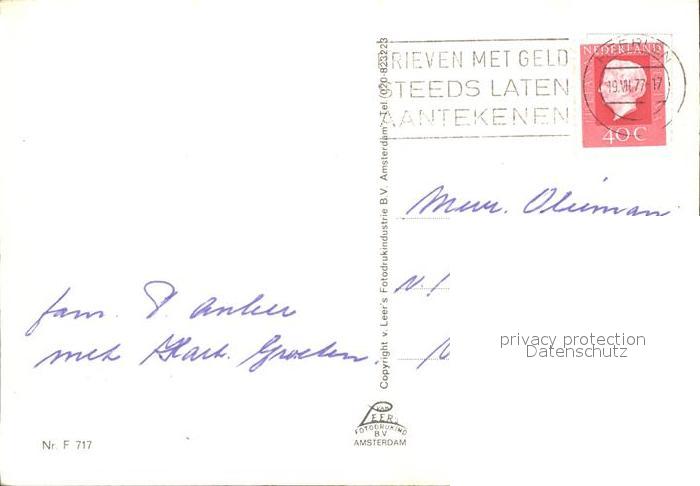 RIEVEN MET GELD
STEEDS LATEN
AANTEKENEN
NEDERLAND
19.VII.77-17
40C
Mevr. Olieman
N
N
fam. P. Anker
met Hart. Groeten.
Copyright v. Leer's Fotodrukindustrie B.V. Amsterdam - Tel. (020-823223
privacy protection
Datenschutz
VAN
LEER'S
FOTODRUKIND
B.V
AMSTERDAM
Nr. F 717